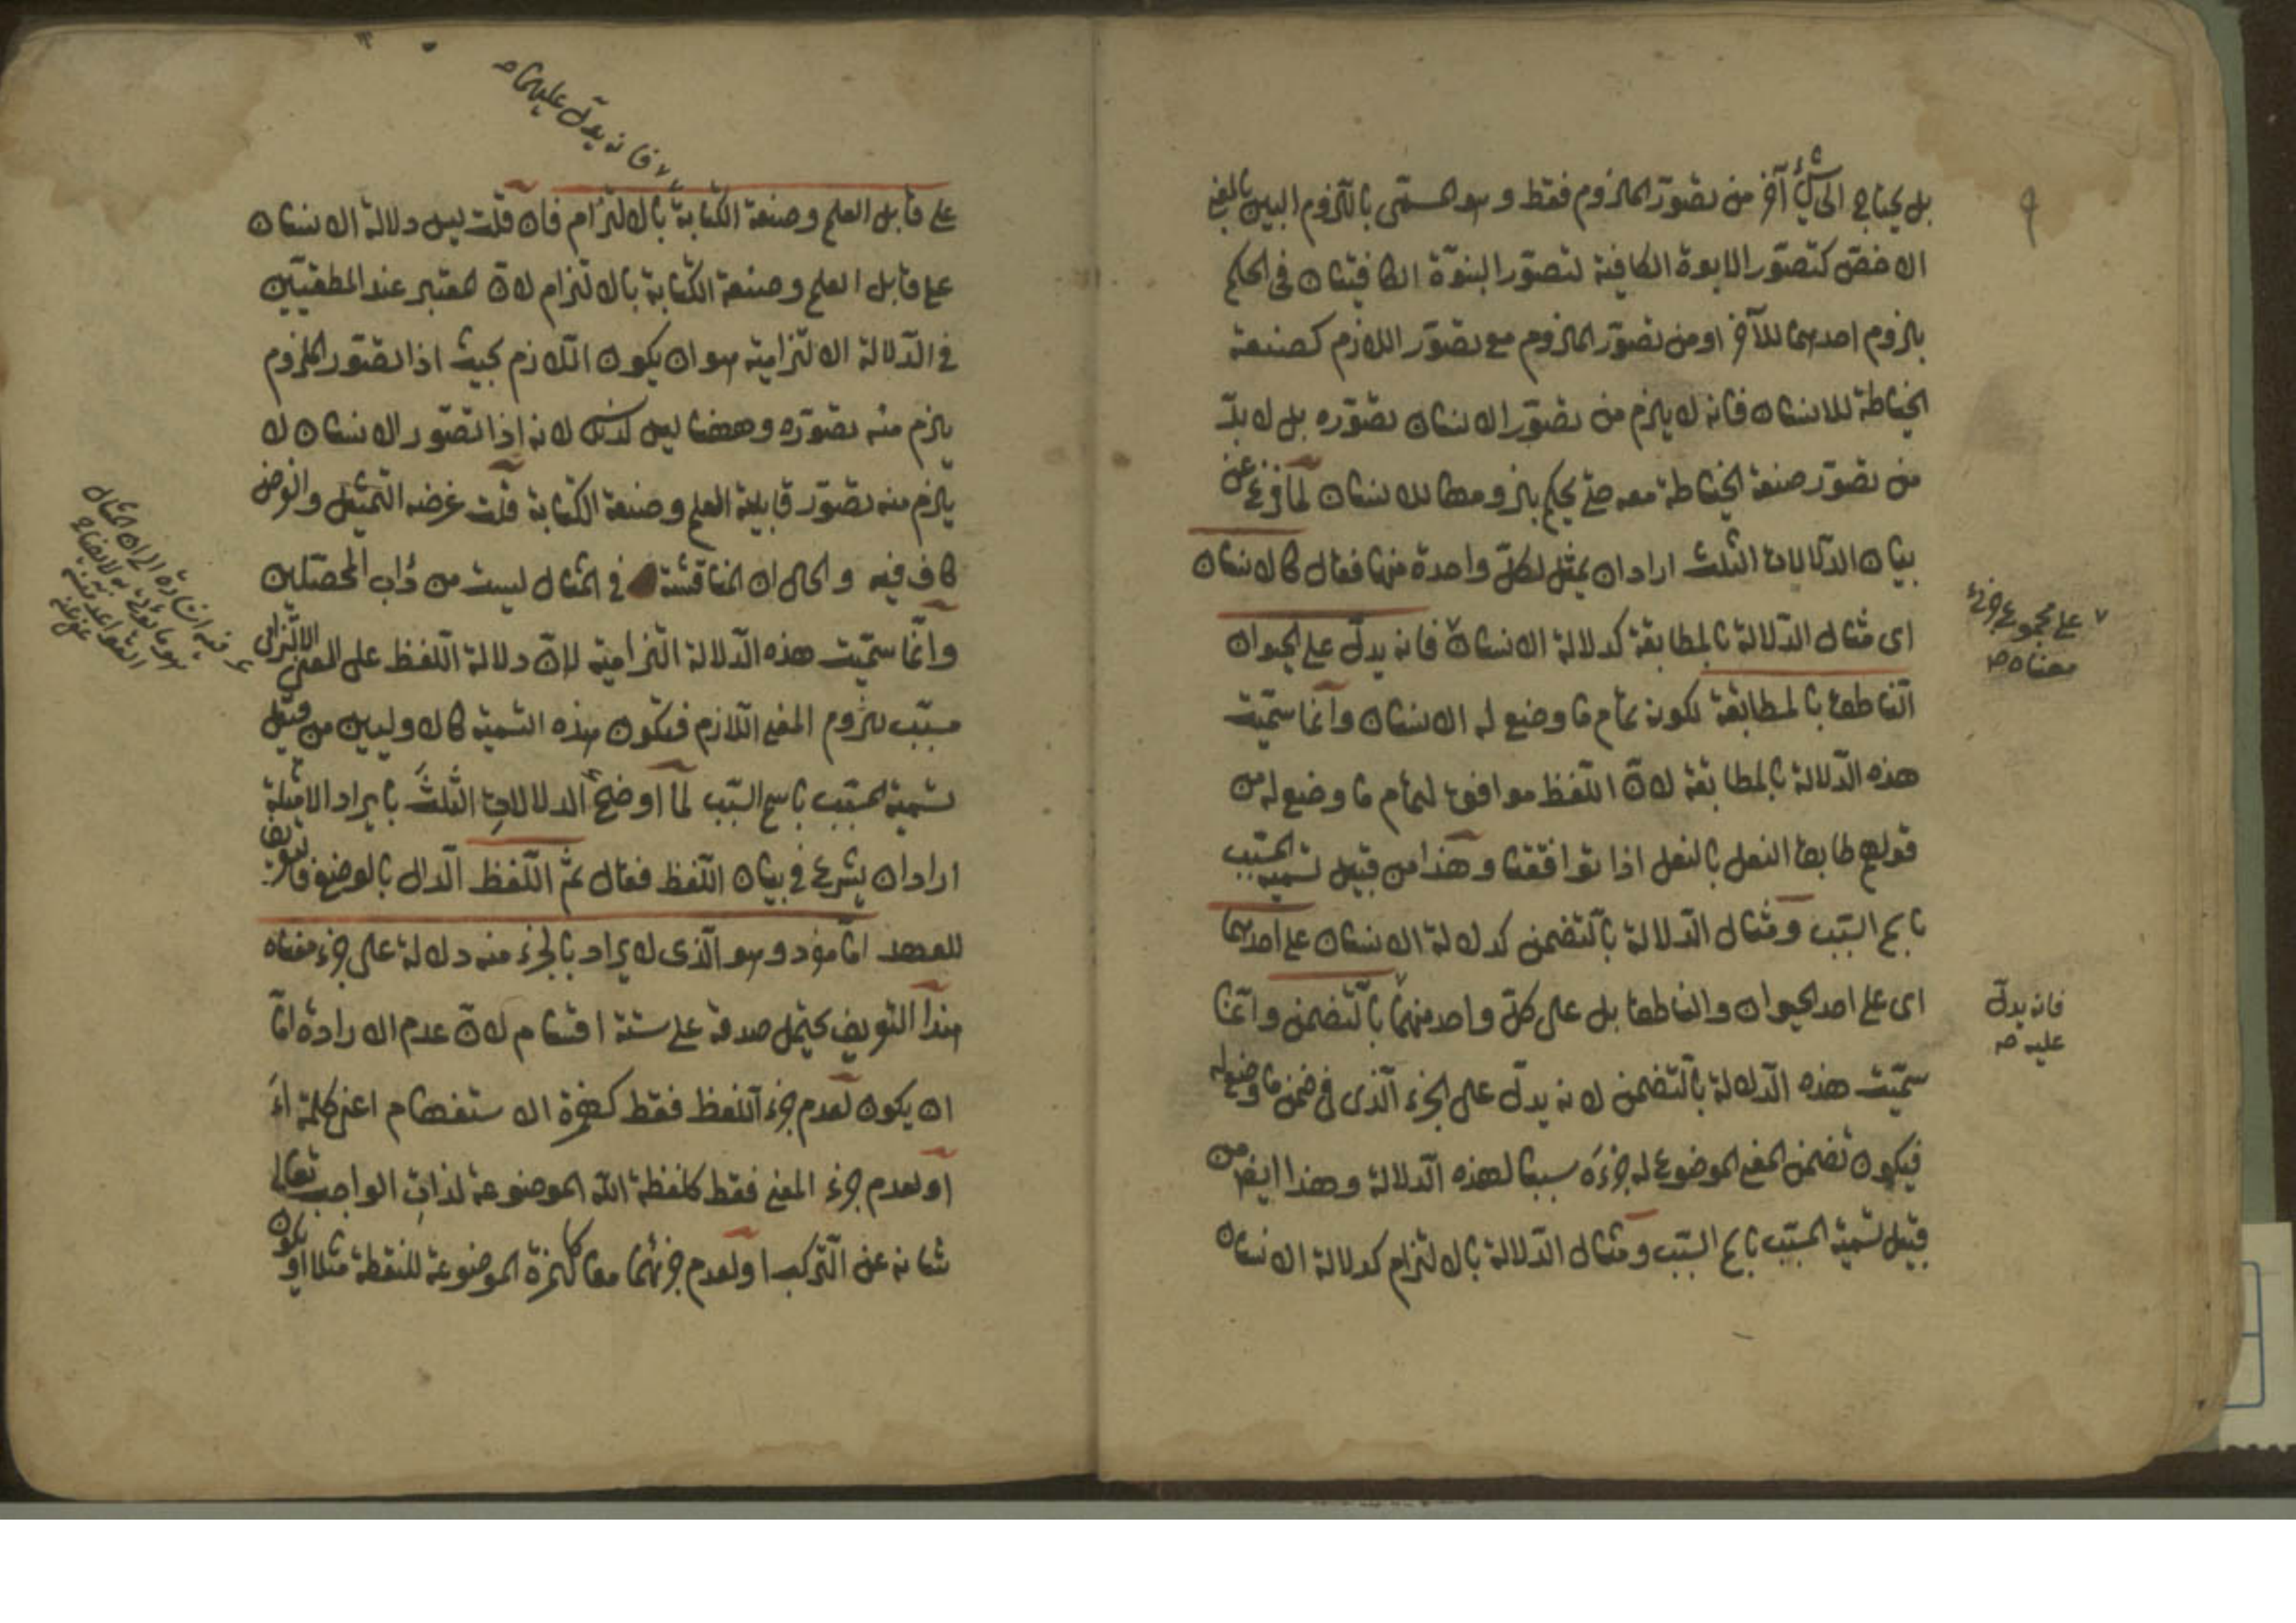 ٩
بل يحتاج الى شئ آخر من تصوّر الملزوم فقط وهو المسمّى باللزوم البين بالمعنى
الاخصّ كتصوّر الابوة الكافية لتصوّر البنوّة الكافيتان فى الحكم
بلزوم احدهما للآخر او من تصوّر الملزوم مع تصوّر اللازم كصنعة
الخياطة للانسان فانه لا يلزم من تصوّر الانسان تصوّره بل لا بدّ
من تصوّر صنعة الخياطة معه حتى يحكم بلزومها للانسان لما فرغ عن
بيان الدّلالات الثلث اراد ان يمثل لكلّ واحدة منها فقال كالانسان
اى مثال الدّلالة بالمطابقة كدلالة الانسان فانه يدلّ على الحيوان
الناطق بالمطابقة لكونه تمام ما وضع له الانسان وانّما سمّيت
هذه الدّلالة بالمطابقة لانّ اللّفظ موافق لتمام ما وضع له من
قولهم طابق النعل بالنعل اذا توافقتا وهذا من قبيل تسمية المسبّب
باسم السّبب ومثال الدّلالة بالتّضمن كدلالة الانسان على احدهما
اى على احد الحيوان والناطق بل على كلّ واحد منهما بالتّضمن وانّما
سمّيت هذه الدّلالة بالتّضمن لانه يدلّ على الجزء الّذى فى ضمن ما وضع له
فيكون تضمن المعنى الموضوع له جزءَه سببا لهذه الدّلالة وهذا ايضا من
قبيل تسمية المسبّب باسم السّبب ومثال الدّلالة بالالتزام كدلالة الانسان
٧ على مجموع جزئى
معناه صح
فانه يدلّ
عليه صح
٧ فانه يدلّ عليهما صح
على قابل العلم وصنعة الكتابة بالالتزام فان قلت ليس دلالة الانسان
على قابل العلم وصنعة الكتابة بالالتزام لانّ المعتبر عند المنطقيّين
فى الدّلالة الالتزامية هو ان يكون اللّازم بحيث اذا تصوّر الملزوم
يلزم منه تصوّره وههنا ليس كذلك لانه اذا تصوّر الانسان لا
يلزم منه تصوّر قابلية العلم وصنعة الكتابة قلت غرضه التمثيل والفرض
كاف فيه والحال ان المناقشة فى المثال ليست من دأب المحصّلين
وانّما سمّيت هذه الدّلالة التزامية لانّ دلالة اللّفظ على المعنى الالتزامى
مسبّب للزوم المعنى اللّازم فتكون هذه التسمية كالاوليين من قبيل
تسمية المسبّب باسم السّبب لمّا اوضح الدلالات الثلث بايراد الامثلة
اراد ان يشرع فى بيان اللّفظ فقال ثمّ اللّفظ الدّال بالوضع فالتعريف
للعهد امّا مفرد وهو الّذى لا يراد بالجزء منه دلالة على جزء معناه
هذا التعريف يحتمل صدقه على ستة اقسام لانّ عدم الارادة امّا
ان يكون لعدم جزء اللّفظ فقط كهمزة الاستفهام اعنى كلمة أَ
او لعدم جزء المعنى فقط كلفظة الله الموضوعة لذات الواجب تعالى
شانه عن التّركيب او لعدم جزئهما معا كالهمزة الموضوعة للنقطة مثلا او يكون
فيه اشارة الى ان المثال